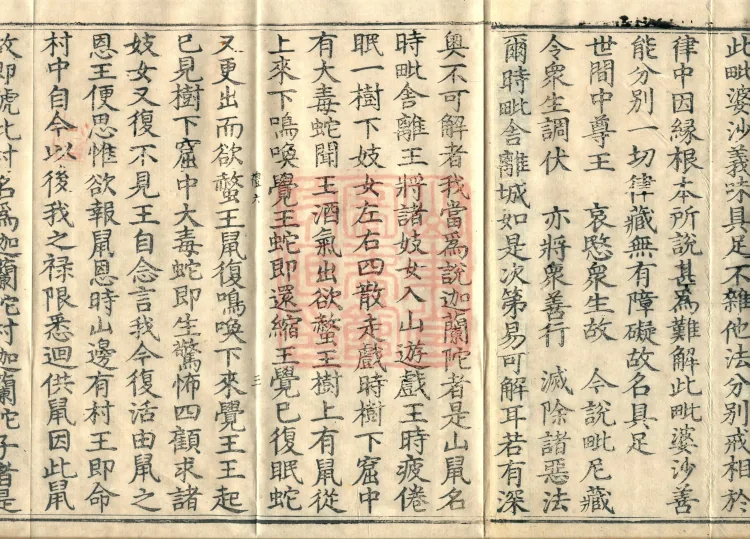 此毗婆沙義味具足不雜他法分別戒相於
律中因緣根本所說甚為難解此毗婆沙善
能分別一切律藏無有障礙故名具足
世間中尊王　哀愍衆生故　今說毗尼藏
令衆生調伏　亦將衆善行　滅除諸惡法
爾時毗舍離城如是次第易可解耳若有深
奧不可解者我當爲說迦蘭陀者是山鼠名
時毗舍離王將諸妓女入山遊戲王時疲倦
眠一樹下妓女左右四散走戲時樹下窟中
有大毒蛇聞王酒氣出欲螫王樹上有鼠從
上來下鳴喚覺王蛇即還縮王覺已復眠蛇
又更出而欲螫王鼠復鳴喚下來覺王王起
已見樹下窟中大毒蛇即生驚怖四顧求諸
妓女又復不見王自念言我今復活由鼠之
恩王便思惟欲報鼠恩時山邊有村王即命
村中自今以後我之祿限悉迴供鼠因此鼠
故即號此村名爲迦蘭陀村迦蘭陀子者是
三